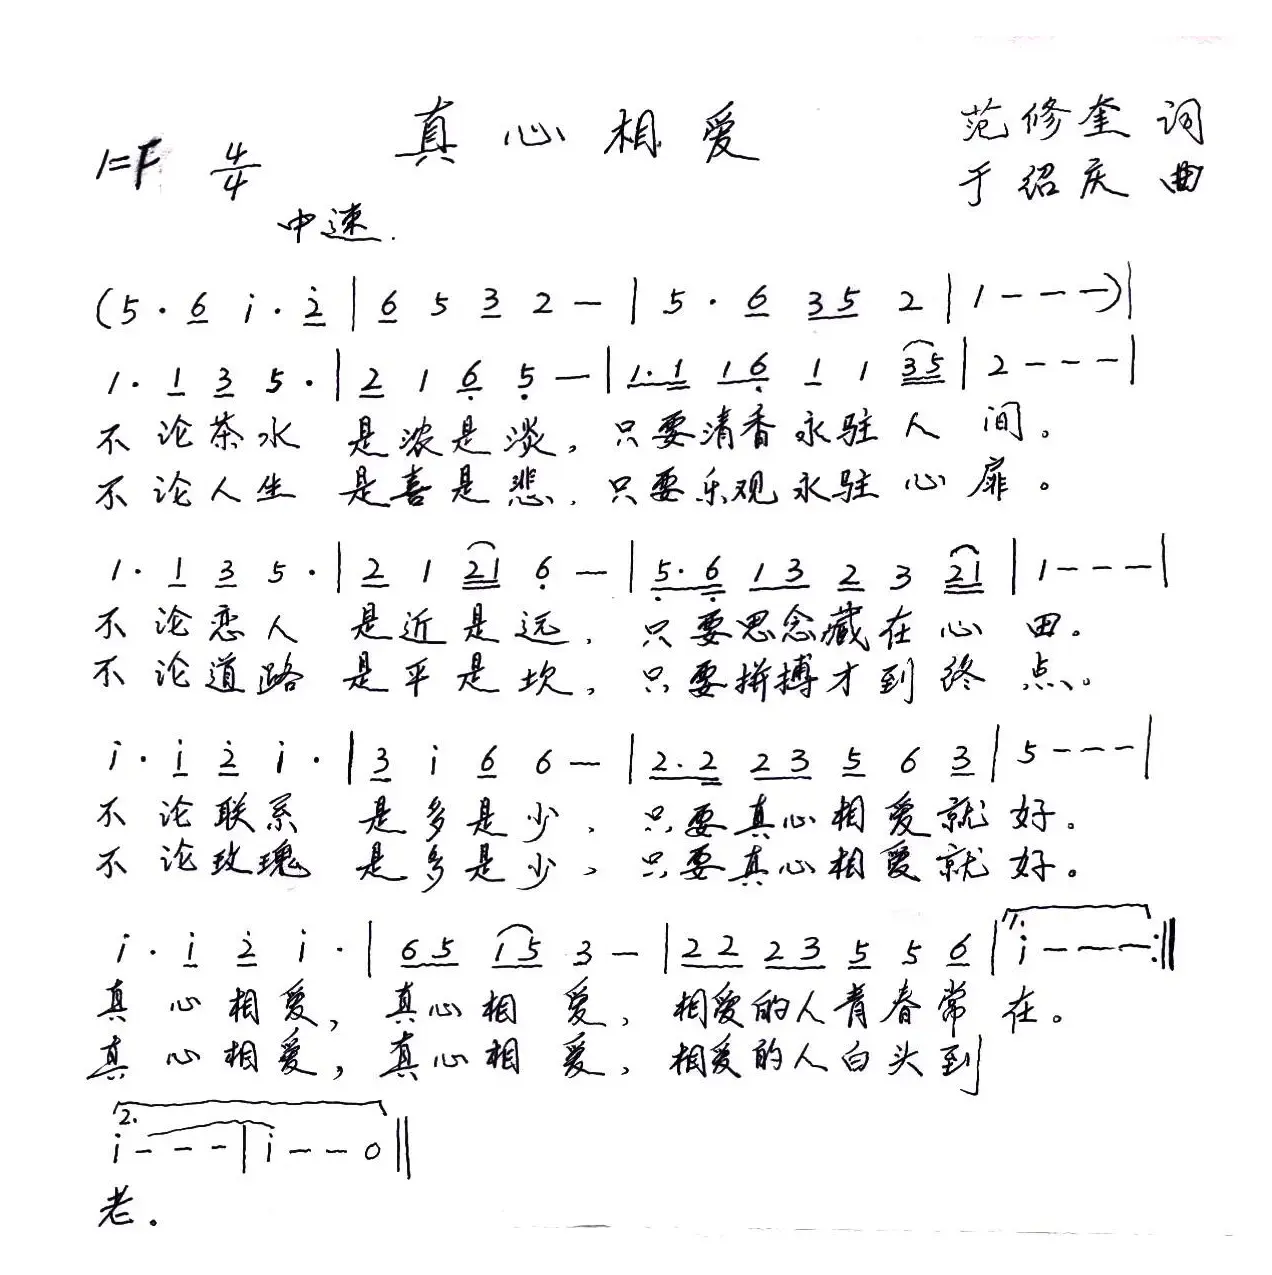 真心相爱
范修奎 词
1=F 4/4
于绍庆 曲
中速.
(5·6 i·2|6 5 3 2 —|5·6 35 2|1 — — —)|
1·1 3 5·|2 1 6 5 —|1·1 16 1 1 35|2 — — —|
不论茶水 是浓是淡，只要清香永驻人间。
不论人生 是喜是悲，只要乐观永驻心扉。
1·1 3 5·|2 1 21 6 —|5·6 13 2 3 21|1 — — —|
不论恋人 是近是远，只要思念藏在心田。
不论道路 是平是坎，只要拼搏才到终点。
i·i 2 i·|3 i 6 6 —|2·2 23 5 6 3|5 — — —|
不论联系 是多是少，只要真心相爱就好。
不论玫瑰 是多是少，只要真心相爱就好。
i·i 2 i·|65 15 3 —|22 23 5 5 6|1. i — — —:‖
真心相爱，真心相爱，相爱的人青春常在。
真心相爱，真心相爱，相爱的人白头到
2. i — — —|i — — 0‖
老.